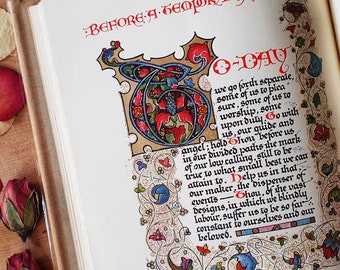 BEFORE·A·TEMPORARY
TO-DAY
we go forth separate,
some of us to plea
sure, some of us to
worship, some
upon duty. Go with
us, our guide and
angel; hold Thou before us
in our divided paths the mark
of our low calling, still to be
true to what small best we can
attain to. help us in that:
our maker, the dispenser of
events — Thou, of the vast
designs, in which we blindly
labour, suffer us to be so far
constant to ourselves and our
beloved.